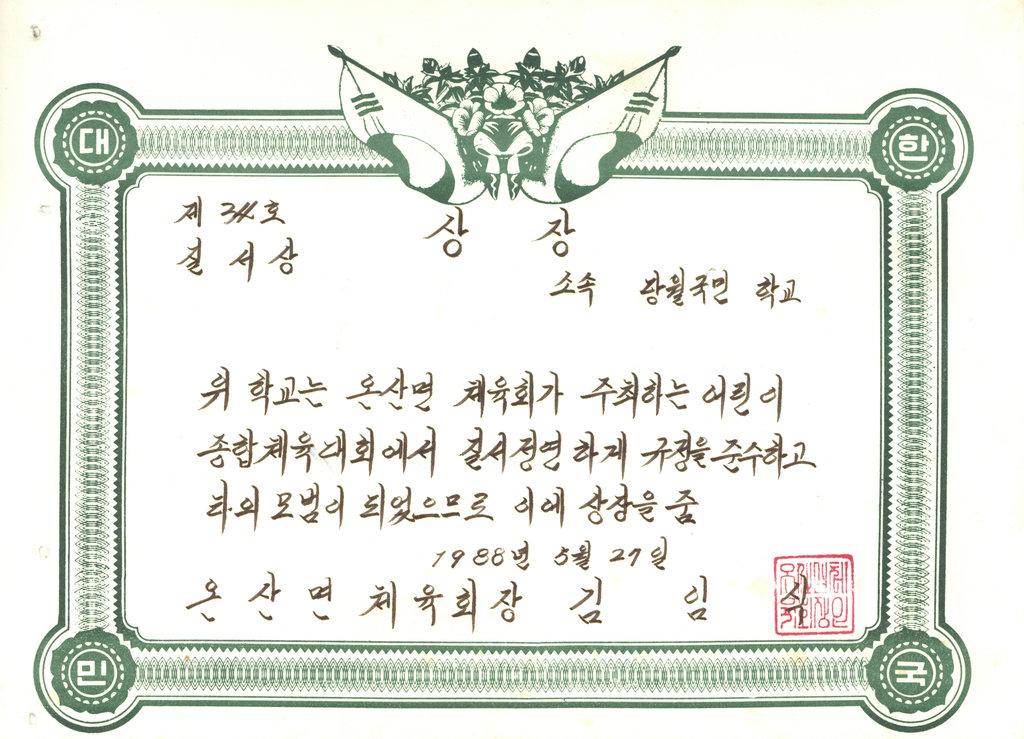 대 한
제 호
상 장
질서상
소속 당월국민 학교
위 학교는 온산면 체육회가 주최하는 어린이
종합체육대회에서 질서정연하게 규정을 준수하고
타의 모범이 되었으므로 이에 상장을 줌
1988년 5월 27일
온산면 체육회장 김 임 식
민 국